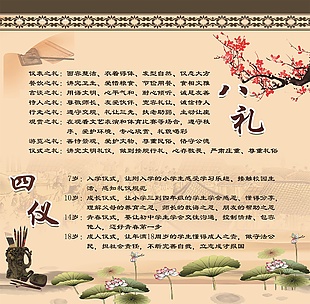 八礼
仪表之礼：面容整洁、衣着得体、发型自然、仪态大方
餐饮之礼：讲究卫生、爱惜粮食、节俭用餐、食相文雅
言谈之礼：用语文明、心平气和、耐心倾听、诚恳友善
待人之礼：尊敬师长、友爱伙伴、宽容礼让、诚信待人
行走之礼：遵守交规、礼让三先、扶老助弱、主动让座
观赏之礼：在观看文艺演出和体育比赛等场合，遵守秩
序、爱护环境、专心欣赏、礼貌喝彩
游览之礼：善待景观、爱护文物、尊重民俗、恪守公德
仪式之礼：讲究文明礼仪，做到按规行礼、心存敬畏、严肃庄重、尊重礼俗
四仪
7岁：入学仪式，让刚入学的小学生感受学习乐趣、接触校园生
活、感知礼仪规范
10岁：成长仪式，让小学三到四年级的学生学会感恩、懂得分享，
理解父母的养育之恩、师长的教诲之恩、朋友的帮助之恩
14岁：青春仪式，要让初中学生学会交往沟通、控制情绪、包容
他人、迈好青春第一步
18岁：成人仪式，让年满18周岁的学生懂得成人之责、做守法公
民，担社会责任，不断完善自我、立志成才报国